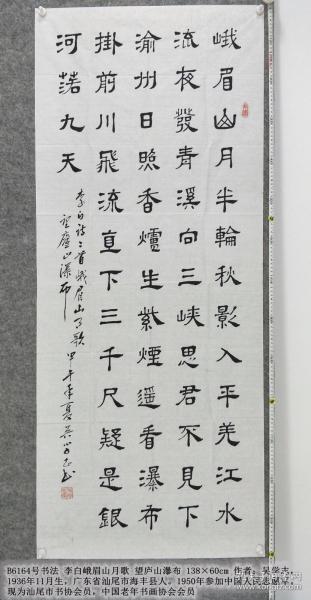 峨眉山月半輪秋影入平羌江水
流夜發青溪向三峽思君不見下
渝州日照香爐生紫煙遥看瀑布
掛前川飛流直下三千尺疑是銀
河落九天
李白詩二首峨眉山月歌
望廬山瀑布
甲午年夏吴学志书
B6164号书法 李白峨眉山月歌 望庐山瀑布 138×60cm 作者：吴学志，
1936年11月生，广东省汕尾市海丰县人，1950年参加中国人民志愿军，
现为汕尾市书协会员，中国老年书画协会会员